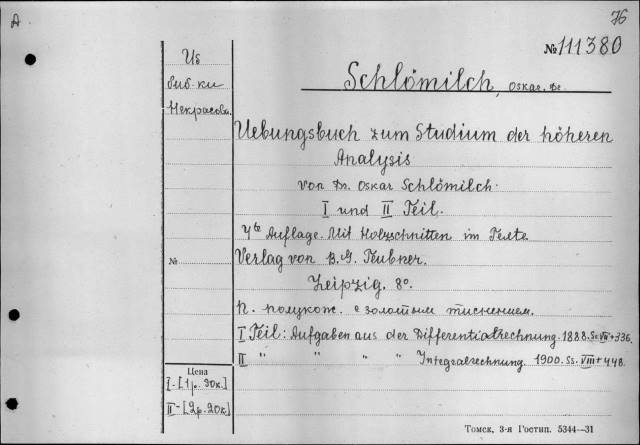 A
76
№ 111380
Из
биб-ки
Некрасова.
Schlömilch, Oskar. Dr.
Uebungsbuch zum Studium der höheren
Analysis
von Dr. Oskar Schlömilch.
I und II Teil.
4te Auflage. Mit Holzschnitten im Texte.
№
Verlag von B. G. Teubner.
Leipzig. 8º.
п. полукож. с золотым тиснением.
I Teil: Aufgaben aus der Differentialrechnung. 1888. Ss. VIII + 336.
II " " " " Integralrechnung. 1900. Ss. VIII + 448.
Цена
I - [1р. 90к.]
II - [2р. 20к.]
Томск, 3-я Гостип. 5344—31